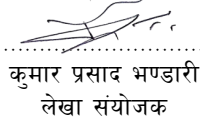 कुमार प्रसाद भण्डारी
लेखा संयोजक